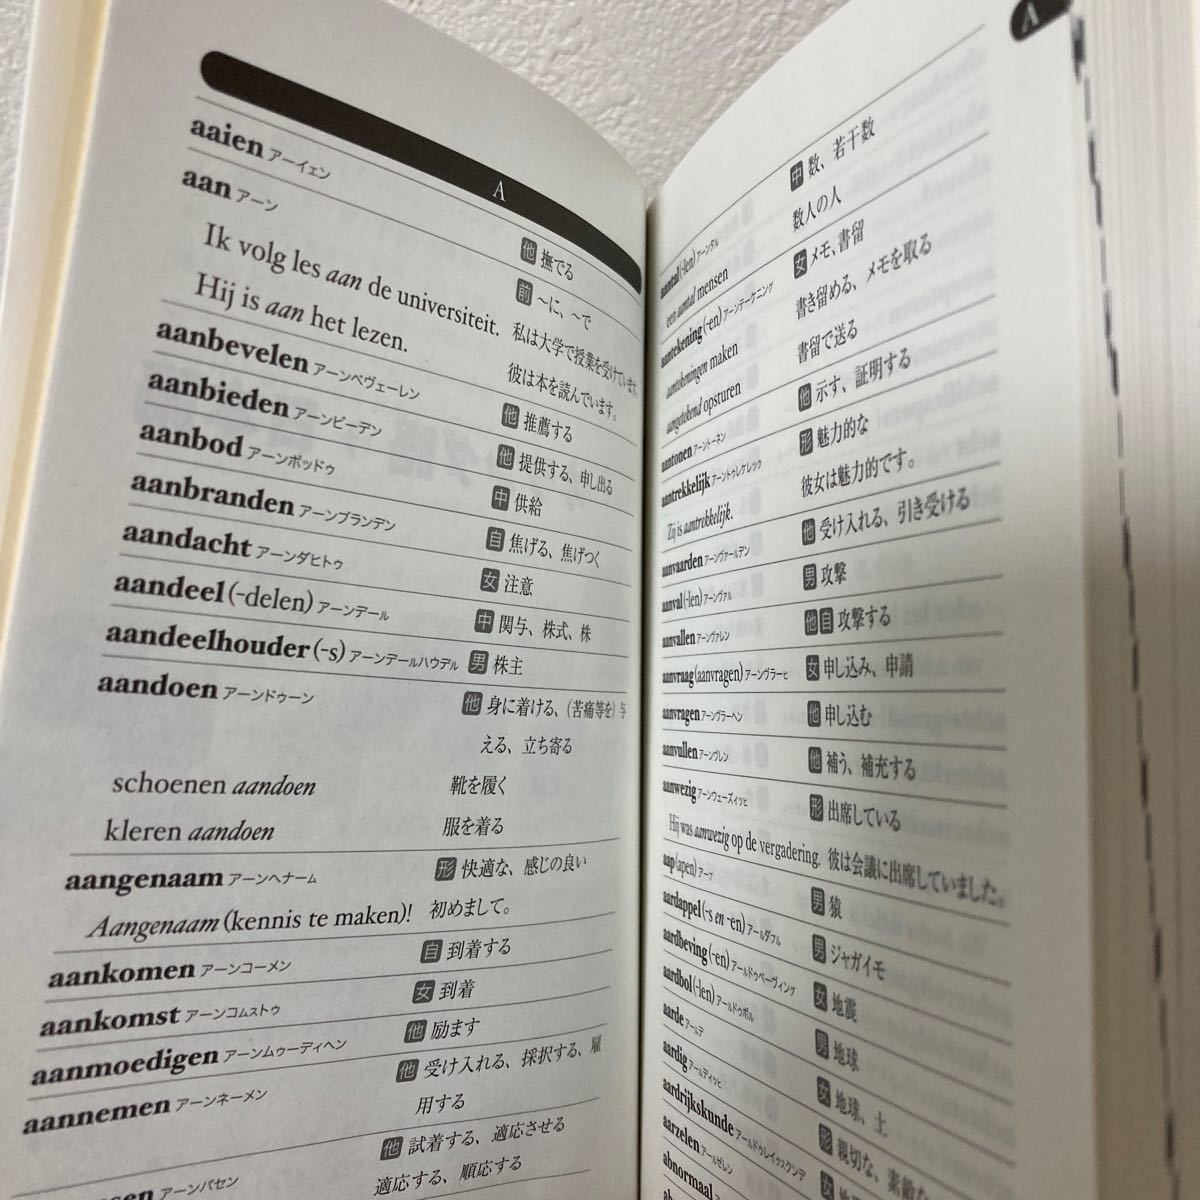 A
aaien アーイェン 他 撫でる
aan アーン 前 ～に、～で
Ik volg les aan de universiteit. 私は大学で授業を受けています。
Hij is aan het lezen. 彼は本を読んでいます。
aanbevelen アーンベヴェーレン 他 推薦する
aanbieden アーンビーデン 他 提供する、申し出る
aanbod アーンボッドゥ 中 供給
aanbranden アーンブランデン 自 焦げる、焦げつく
aandacht アーンダヒトゥ 女 注意
aandeel (-delen) アーンデール 中 関与、株式、株
aandeelhouder (-s) アーンデールハウデル 男 株主
aandoen アーンドゥーン 他 身に着ける、(苦痛等を) 与
える、立ち寄る
schoenen aandoen 靴を履く
kleren aandoen 服を着る
aangenaam アーンヘナーム 形 快適な、感じの良い
Aangenaam (kennis te maken)! 初めまして。
aankomen アーンコーメン 自 到着する
aankomst アーンコムストゥ 女 到着
aanmoedigen アーンムゥーディヘン 他 励ます
aannemen アーンネーメン 他 受け入れる、採択する、雇
用する
ssen アーンパセン 他 試着する、適応させる
適応する、順応する
A
aantal (-len) アーンタル 中 数、若干数
een aantal mensen 数人の人
aantekening (-en) アーンテーケニング 女 メモ、書留
aantekeningen maken 書き留める、メモを取る
aangetekend opsturen 書留で送る
aantonen アーントーネン 他 示す、証明する
aantrekkelijk アーントゥレケレック 形 魅力的な
Zij is aantrekkelijk. 彼女は魅力的です。
aanvaarden アーンヴァールデン 他 受け入れる、引き受ける
aanval (-len) アーンヴァル 男 攻撃
aanvallen アーンヴァレン 他 自 攻撃する
aanvraag (aanvragen) アーンヴラーヒ 女 申し込み、申請
aanvragen アーンヴラーヘン 他 申し込む
aanvullen アーンヴレン 他 補う、補充する
aanwezig アーンウェーズィッヒ 形 出席している
Hij was aanwezig op de vergadering. 彼は会議に出席していました。
aap (apen) アープ 男 猿
aardappel (-s en -en) アールダプル 男 ジャガイモ
aardbeving (-en) アールドゥベーヴィング 女 地震
aardbol (-len) アールドゥボル 男 地球
aarde アールデ 女 地球、土
aardig アールディッヒ 形 親切な、素敵な
aardrijkskunde アールドゥレイクスクンデ 女
aarzelen アールゼレン
abnormaal